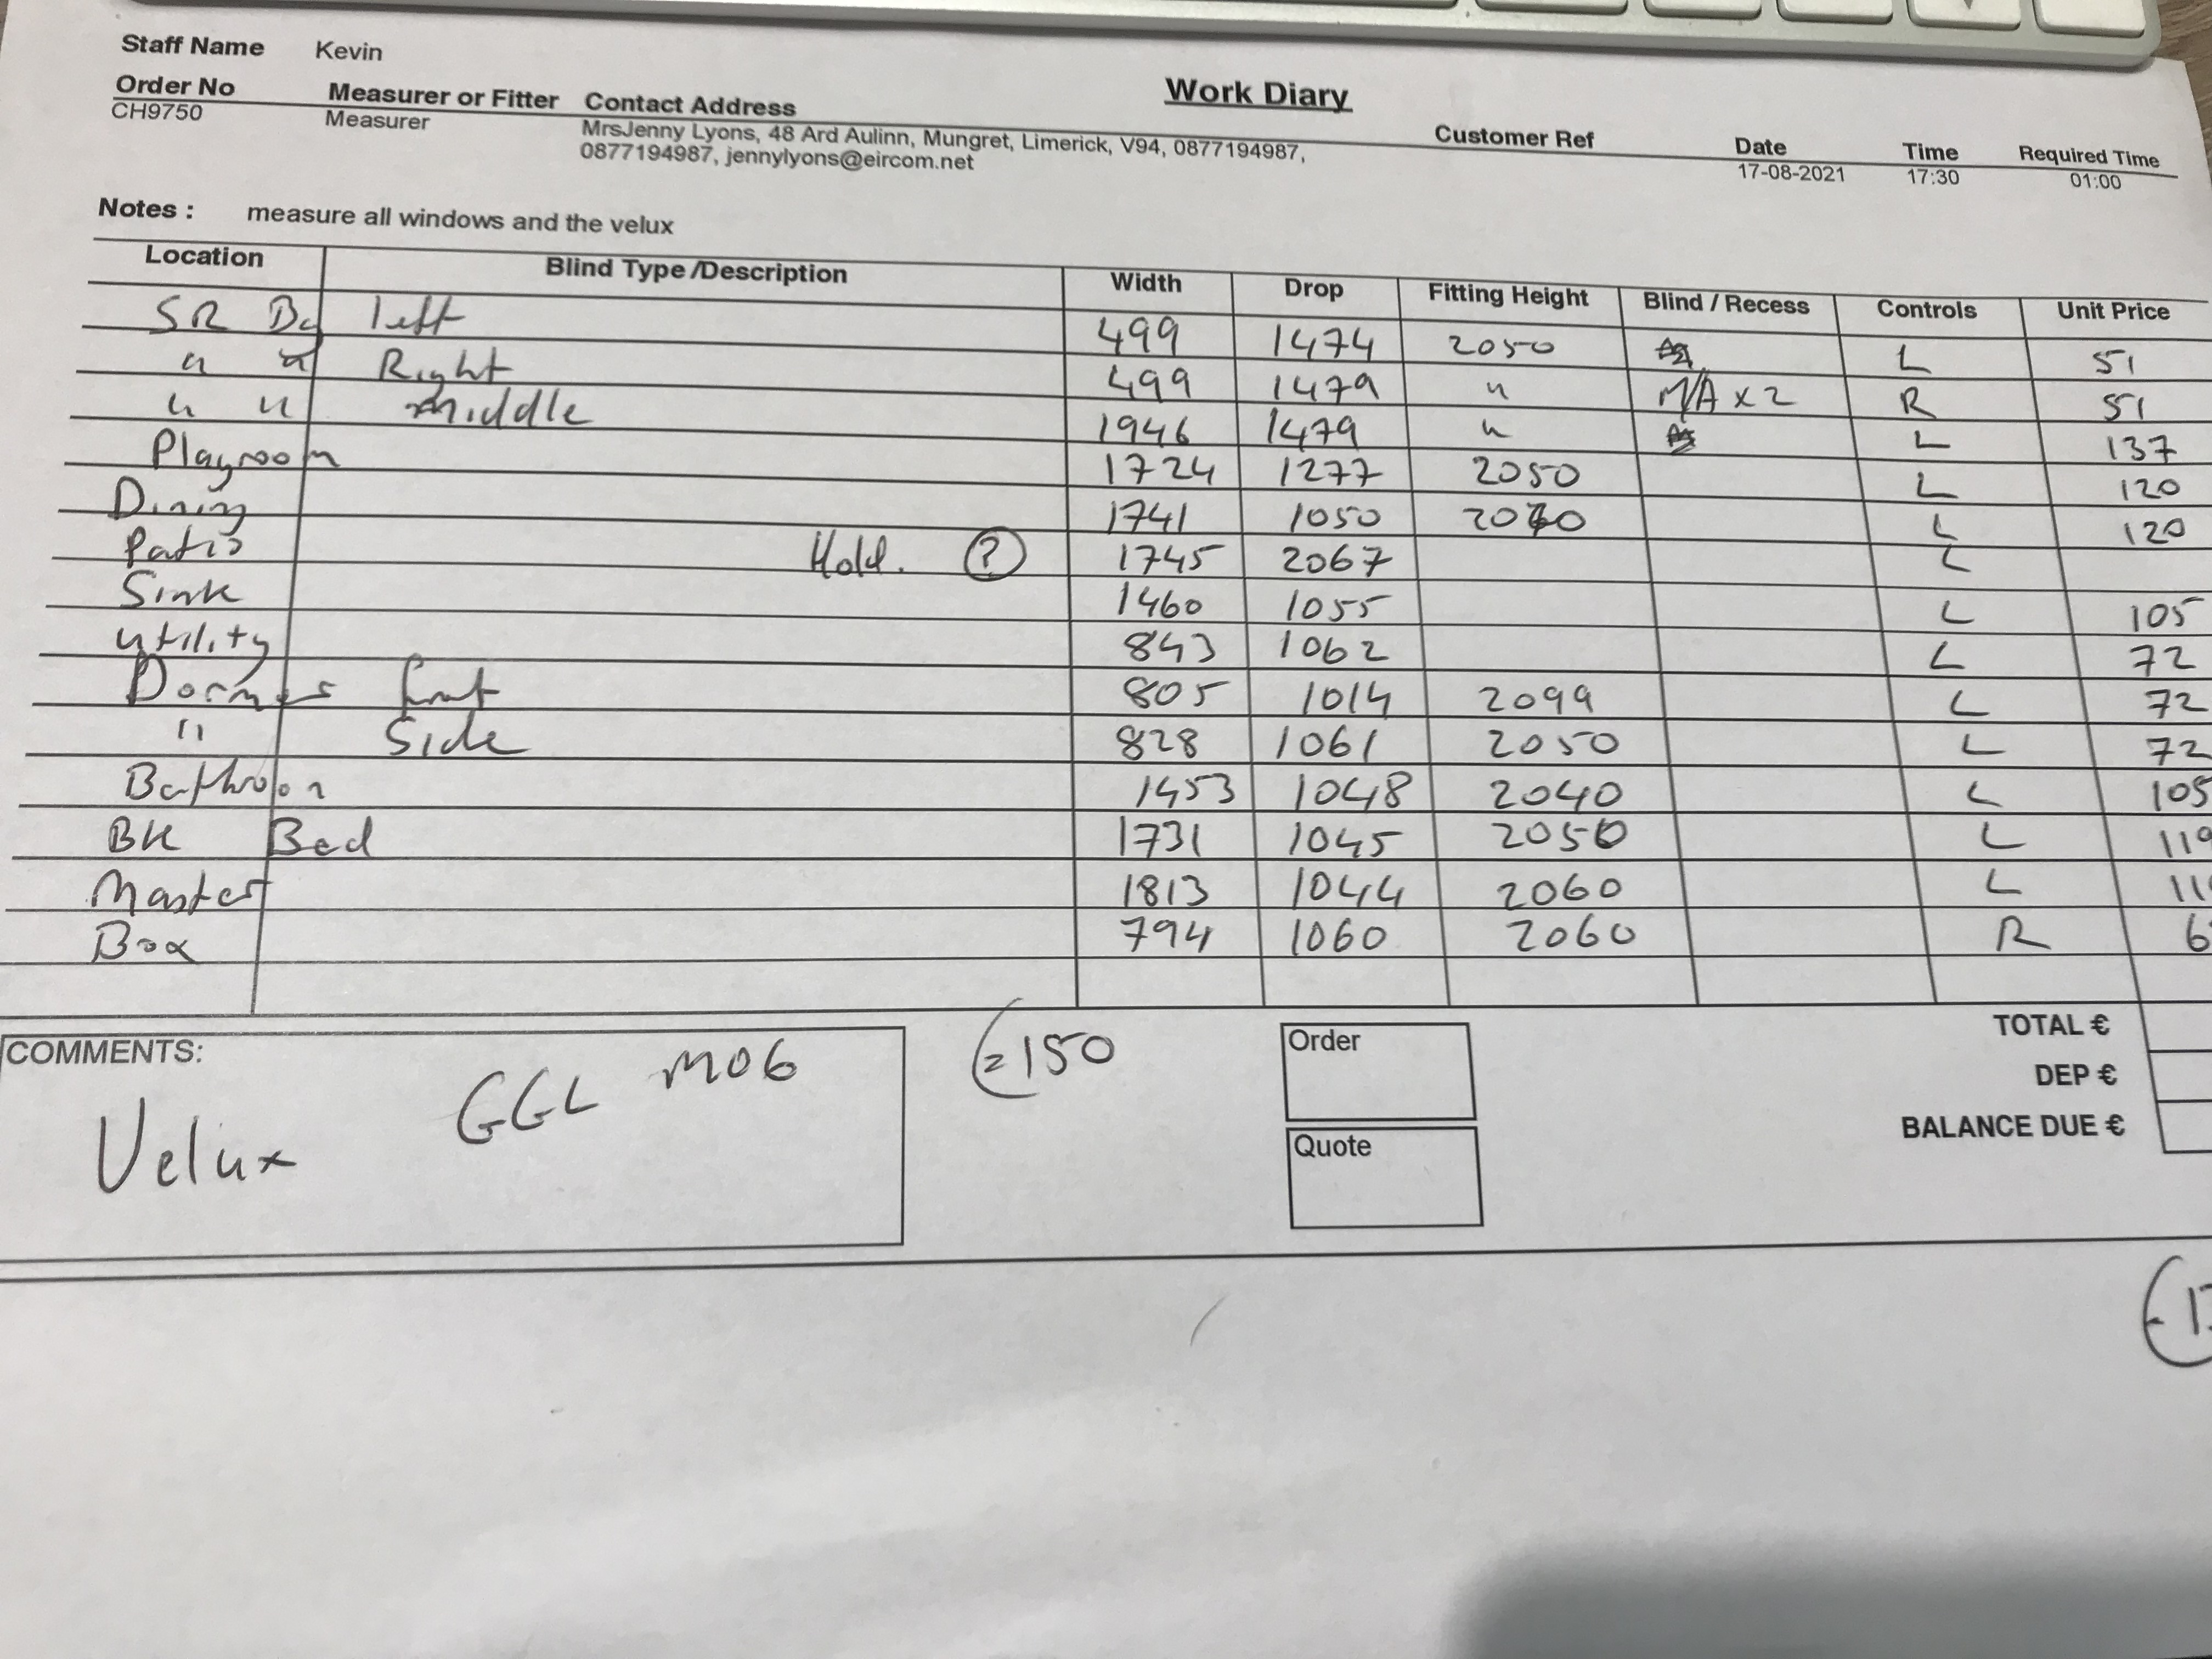 Staff Name Kevin
Work Diary
Order No Measurer or Fitter Contact Address Customer Ref Date Time Required Time
CH9750 Measurer MrsJenny Lyons, 48 Ard Aulinn, Mungret, Limerick, V94, 0877194987, 17-08-2021 17:30 01:00
0877194987, jennylyons@eircom.net
Notes : measure all windows and the velux
Location Blind Type /Description Width Drop Fitting Height Blind / Recess Controls Unit Price
SR left 499 1474 2050 L 51
" " Right 499 1479 " M/A x 2 R 51
" " Middle 1946 1479 " L 137
Playroom 1724 1277 2050 L 120
Dining 1741 1050 L 120
Patio Hold. ? 1745 2067 L
Sink 1460 1055 L 105
Utility 843 1062 L 72
Dormer front 805 1014 2099 L 72
" Side 828 1061 2050 L 72
Bathroon 1453 1048 2040 L 105
BK Bed 1731 1045 2050 L 119
Master 1813 1044 2060 L 11
Box 794 1060 2060 R 6
COMMENTS:
Velux GGL M06
€150
Order
Quote
TOTAL €
DEP €
BALANCE DUE €